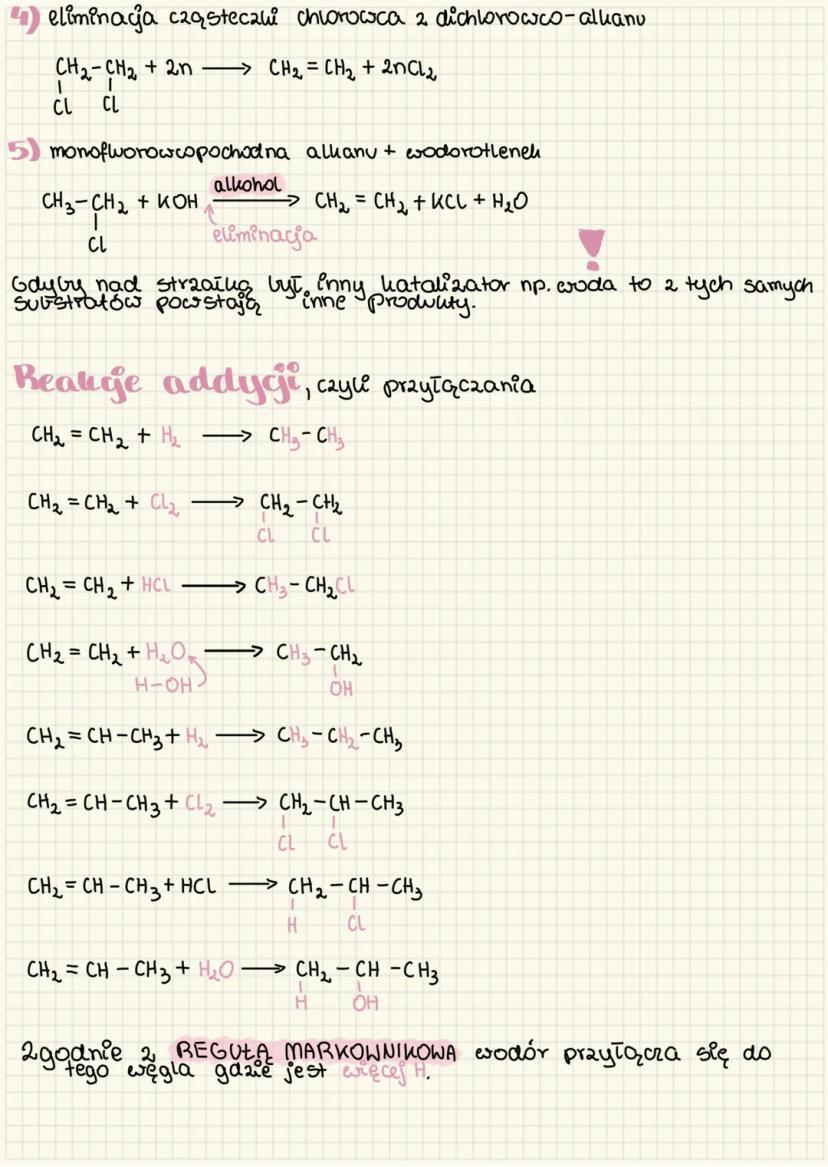 4) eliminacja cząsteczki chlorowca z dichlorowco-alkanu
CH₂-CH₂ + 2n ⟶ CH₂ = CH₂ + 2nCl₂
Cl Cl
5) monofluorowcopochodna alkanu + wodorotlenek
alkohol
CH₃-CH₂ + KOH ⟶ CH₂ = CH₂ + KCl + H₂O
Cl
eliminacja
!
Gdyby nad strzałką był inny katalizator np. woda to z tych samych
substratów powstają inne produkty.
Reakcje addycji, czyli przyłączania
CH₂ = CH₂ + H₂ ⟶ CH₃-CH₃
CH₂ = CH₂ + Cl₂ ⟶ CH₂-CH₂
Cl Cl
CH₂ = CH₂ + HCl ⟶ CH₃-CH₂Cl
CH₂ = CH₂ + H₂O ⟶ CH₃-CH₂
H-OH OH
CH₂ = CH-CH₃ + H₂ ⟶ CH₃-CH₂-CH₃
CH₂ = CH-CH₃ + Cl₂ ⟶ CH₂-CH-CH₃
Cl Cl
CH₂ = CH-CH₃ + HCl ⟶ CH₂-CH-CH₃
H Cl
CH₂ = CH-CH₃ + H₂O ⟶ CH₂-CH-CH₃
H OH
Zgodnie z REGUŁĄ MARKOWNIKOWA wodór przyłącza się do
tego węgla gdzie jest więcej H.